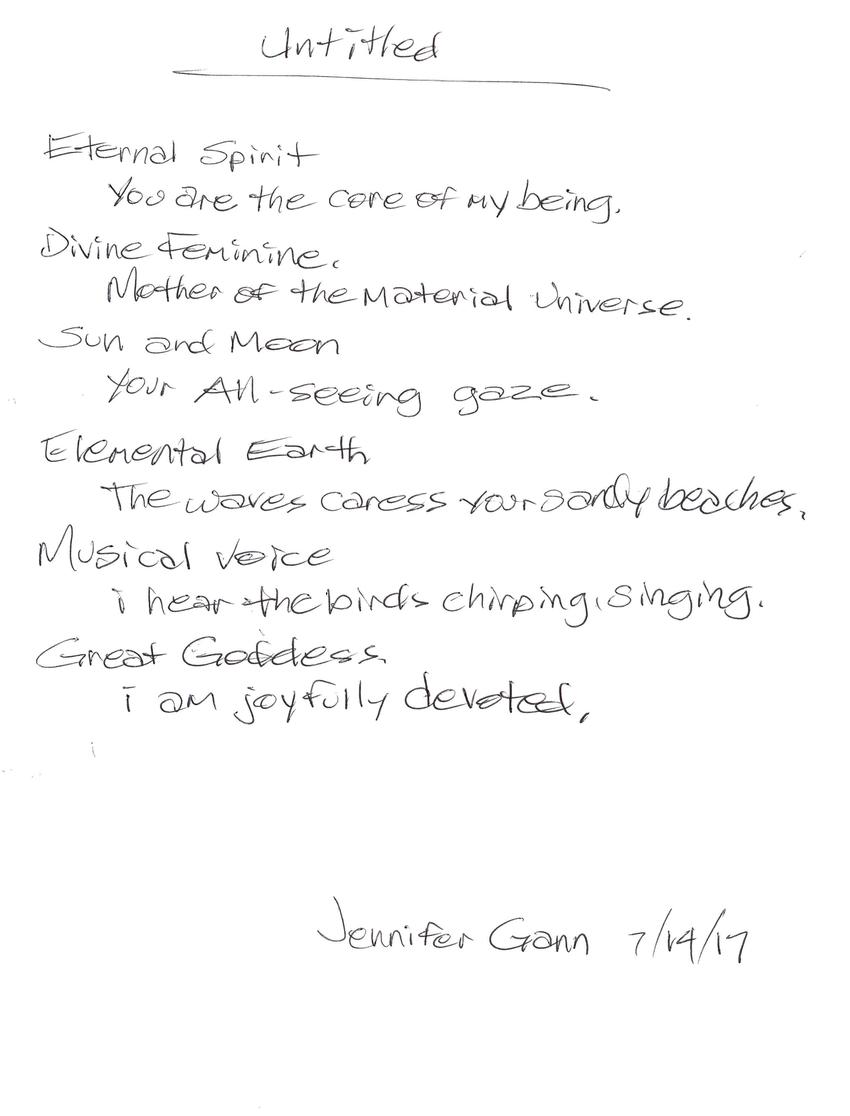 Untitled
Eternal Spirit
You are the core of my being.
Divine Feminine.
Mother of the Material Universe.
Sun and Moon
Your All-seeing gaze.
Elemental Earth
The waves caress your sandy beaches.
Musical Voice
i hear the birds chirping, singing.
Great Goddess.
i am joyfully devoted.
Jennifer Gann 7/14/17